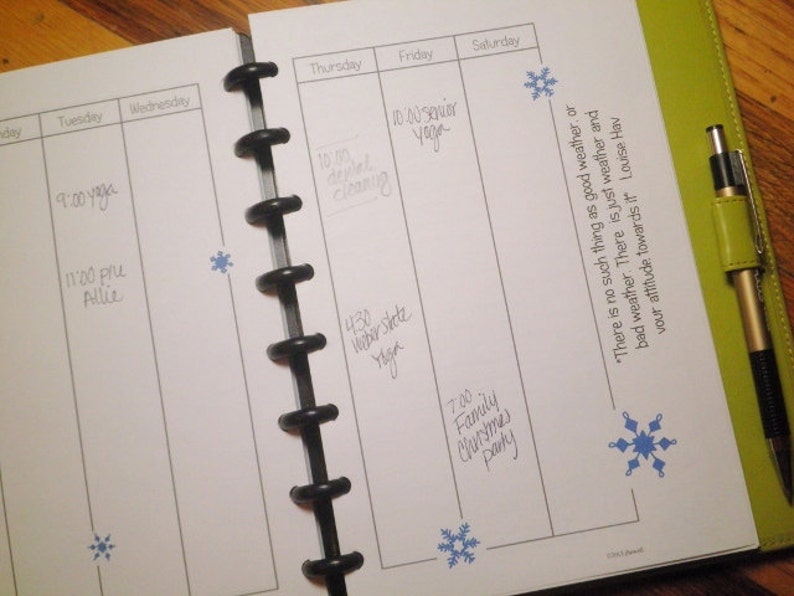 nday
Tuesday
Wednesday
9:00 yoga
11:00 p/u
Allie
Thursday
Friday
Saturday
10:00
dental
cleaning
10:00 senior
yoga
4:30
weber state
yoga
7:00
Family
Christmas
party
"There is no such thing as good weather, or
bad weather. There is just weather and
your attitude towards it" Louise Hay
©2013